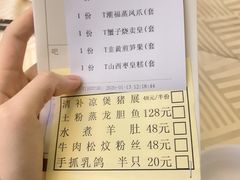 1 份 T潮福蒸凤爪(套
1 份 T蟹子烧卖皇(套
1 份 T韭黄煎笋果(套
1 份 T山西枣皇糕(套
2020-01-13 12:18:44
清补凉煲猪展 48元/半份
土粉蒸龙胆鱼 128元
水煮羊肚 48元
牛肉松炆粉丝 48元
手抓乳鸽 半只 20元